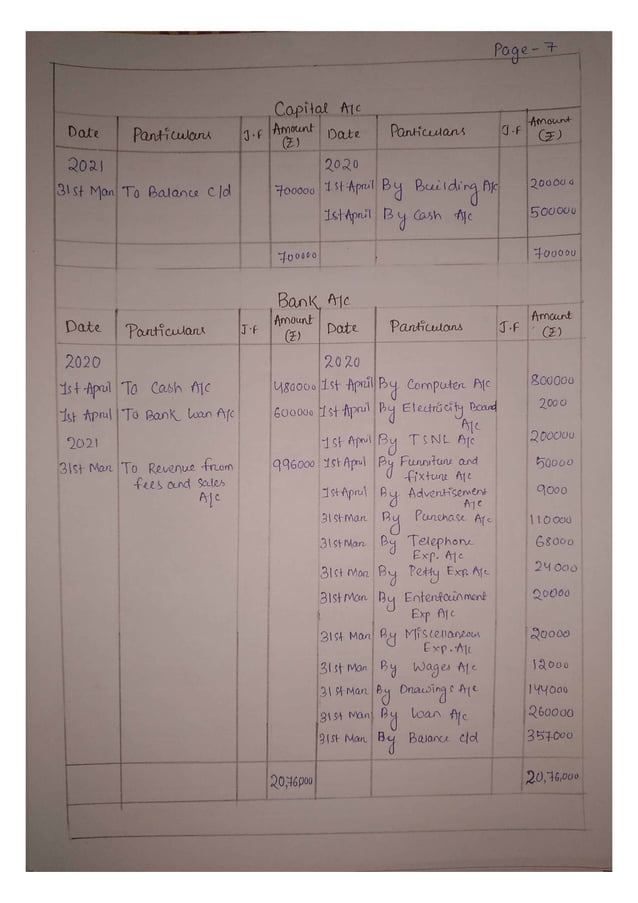 Page-7
Capital A/c
Date Particulars J.F Amount (₹) Date Particulars J.F Amount (₹)
2021 2020
31st Mar To Balance c/d 700000 1st April By Building A/c 200000
1st April By Cash A/c 500000
700000 700000
Bank A/c
Date Particulars J.F Amount (₹) Date Particulars J.F Amount (₹)
2020 2020
1st April To Cash A/c 480000 1st April By Computer A/c 800000
1st April To Bank loan A/c 600000 1st April By Electricity Board A/c 2000
2021 1st April By TSNL A/c 200000
31st Mar To Revenue from fees and sales A/c 996000 1st April By Furniture and fixture A/c 50000
1st April By Advertisement A/c 9000
31st Mar By Purchase A/c 110000
31st Mar By Telephone Exp. A/c 68000
31st Mar By Petty Exp. A/c 24000
31st Mar By Entertainment Exp A/c 20000
31st Mar By Miscellaneous Exp. A/c 20000
31st Mar By Wages A/c 12000
31st Mar By Drawings A/c 144000
31st Mar By loan A/c 260000
31st Mar By Balance c/d 357000
20,76,000 20,76,000